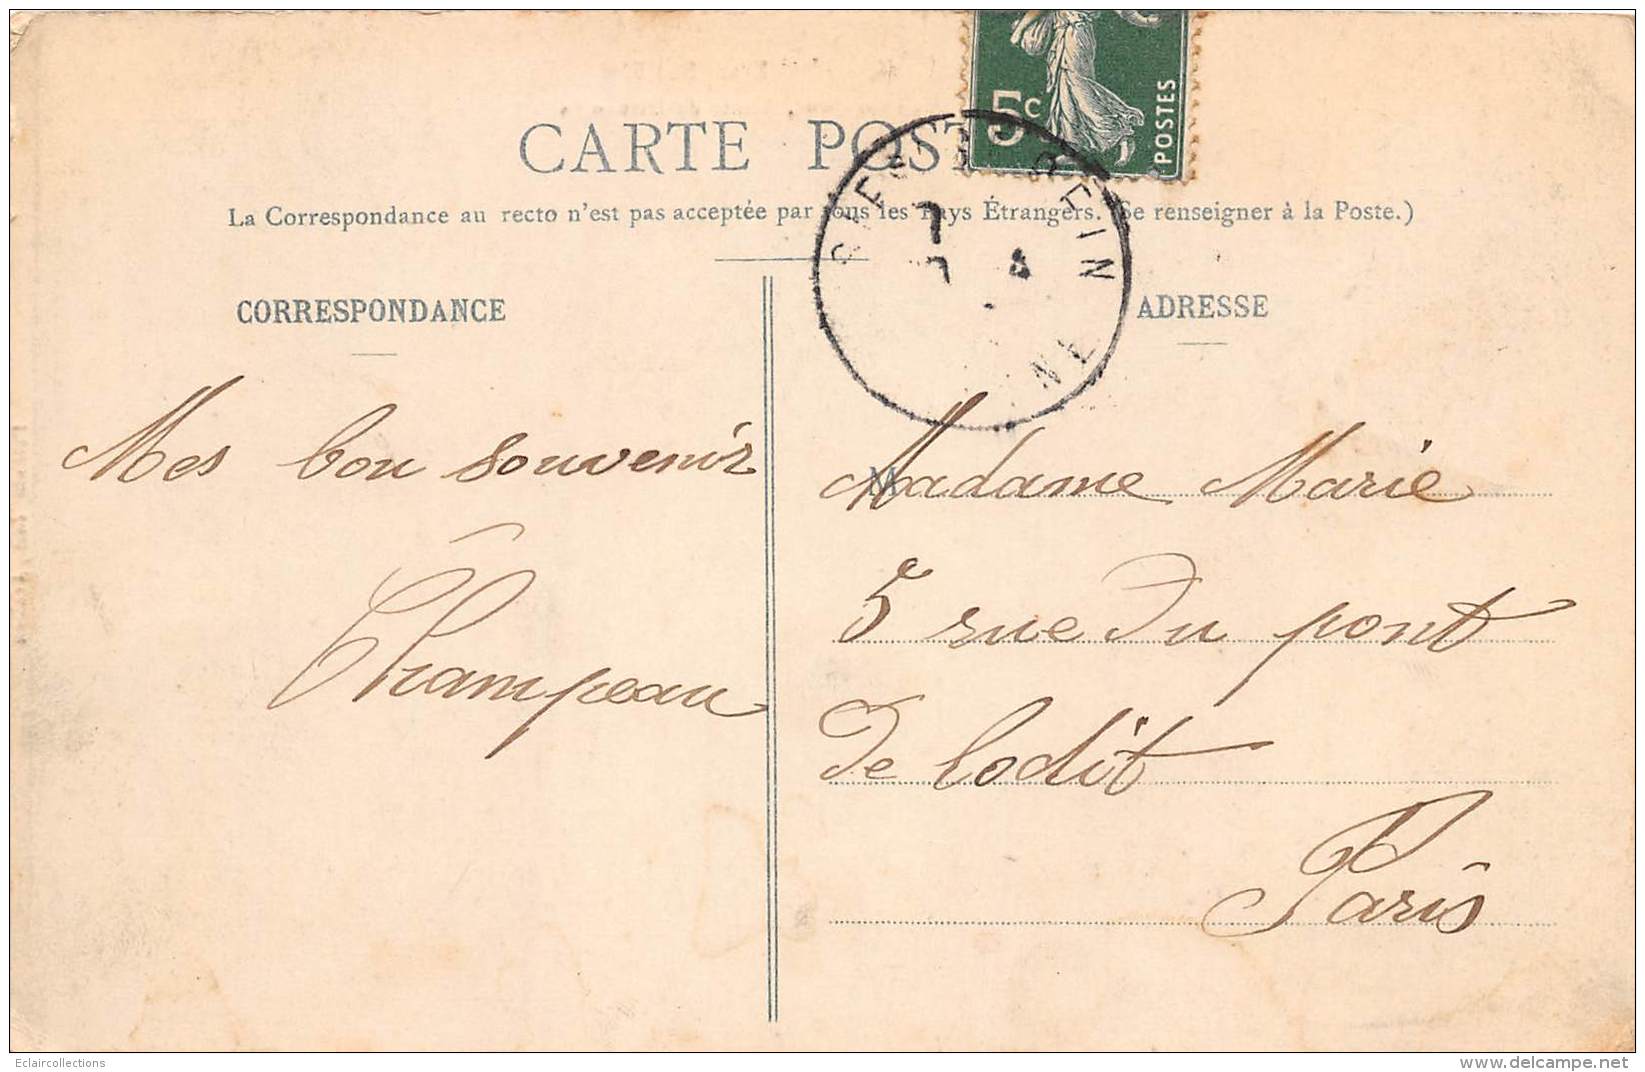 5c
POSTES
CARTE POST
La Correspondance au recto n'est pas acceptée par tous les Pays Étrangers. (Se renseigner à la Poste.)
CORRESPONDANCE
ADRESSE
Mes bon souvenir
Champeau
M
Madame Marie
5 rue du pont
de lodit
Paris
Eclaircollections
delcampe.net